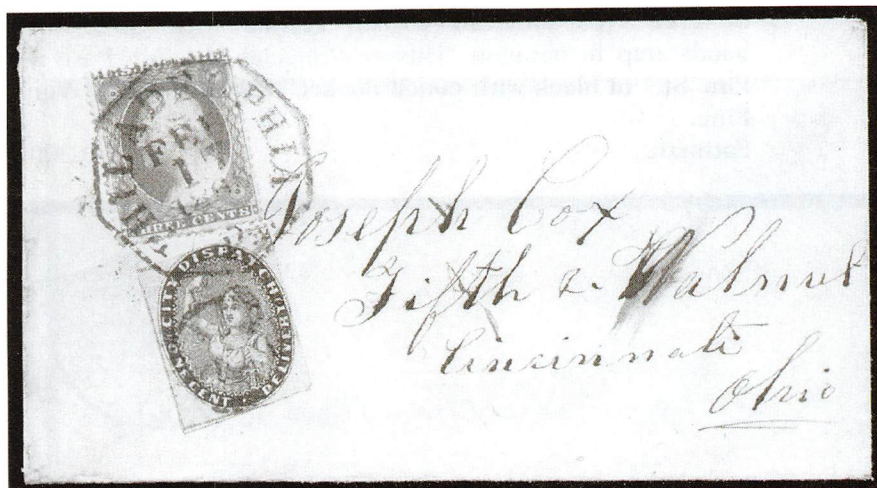 PHILADELPHIA
FEB
1
THREE CENTS
CITY DISPATCH
DELIVERY
ONE CENT
Joseph Cox
Fifth & Walnut
Cincinnati
Ohio